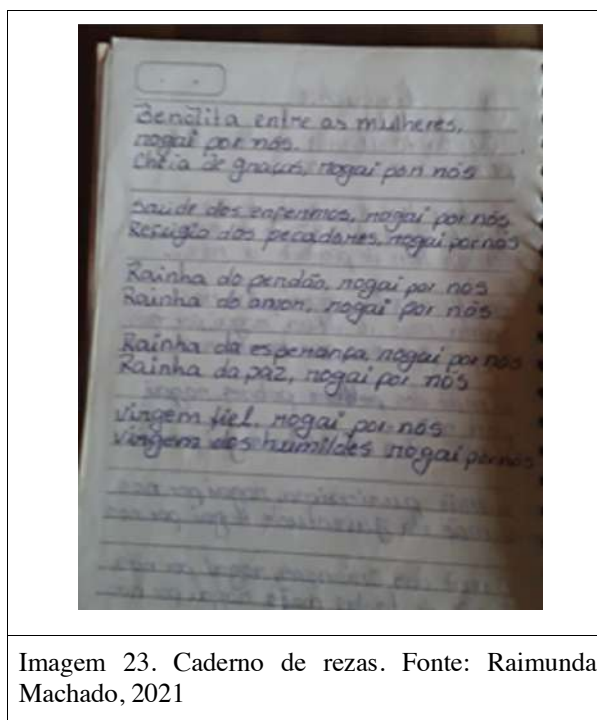 Bendita entre as mulheres,
rogai por nós.
Cheia de graças, rogai por nós
Saude dos enfermos, rogai por nós
Refugio dos pecadores, rogai por nós
Rainha do perdão, rogai por nós
Rainha do amor, rogai por nós
Rainha da esperança, rogai por nós
Rainha da paz, rogai por nós
Virgem fiel, rogai por nós
Virgem dos humildes rogai por nós
Imagem 23. Caderno de rezas. Fonte: Raimunda
Machado, 2021